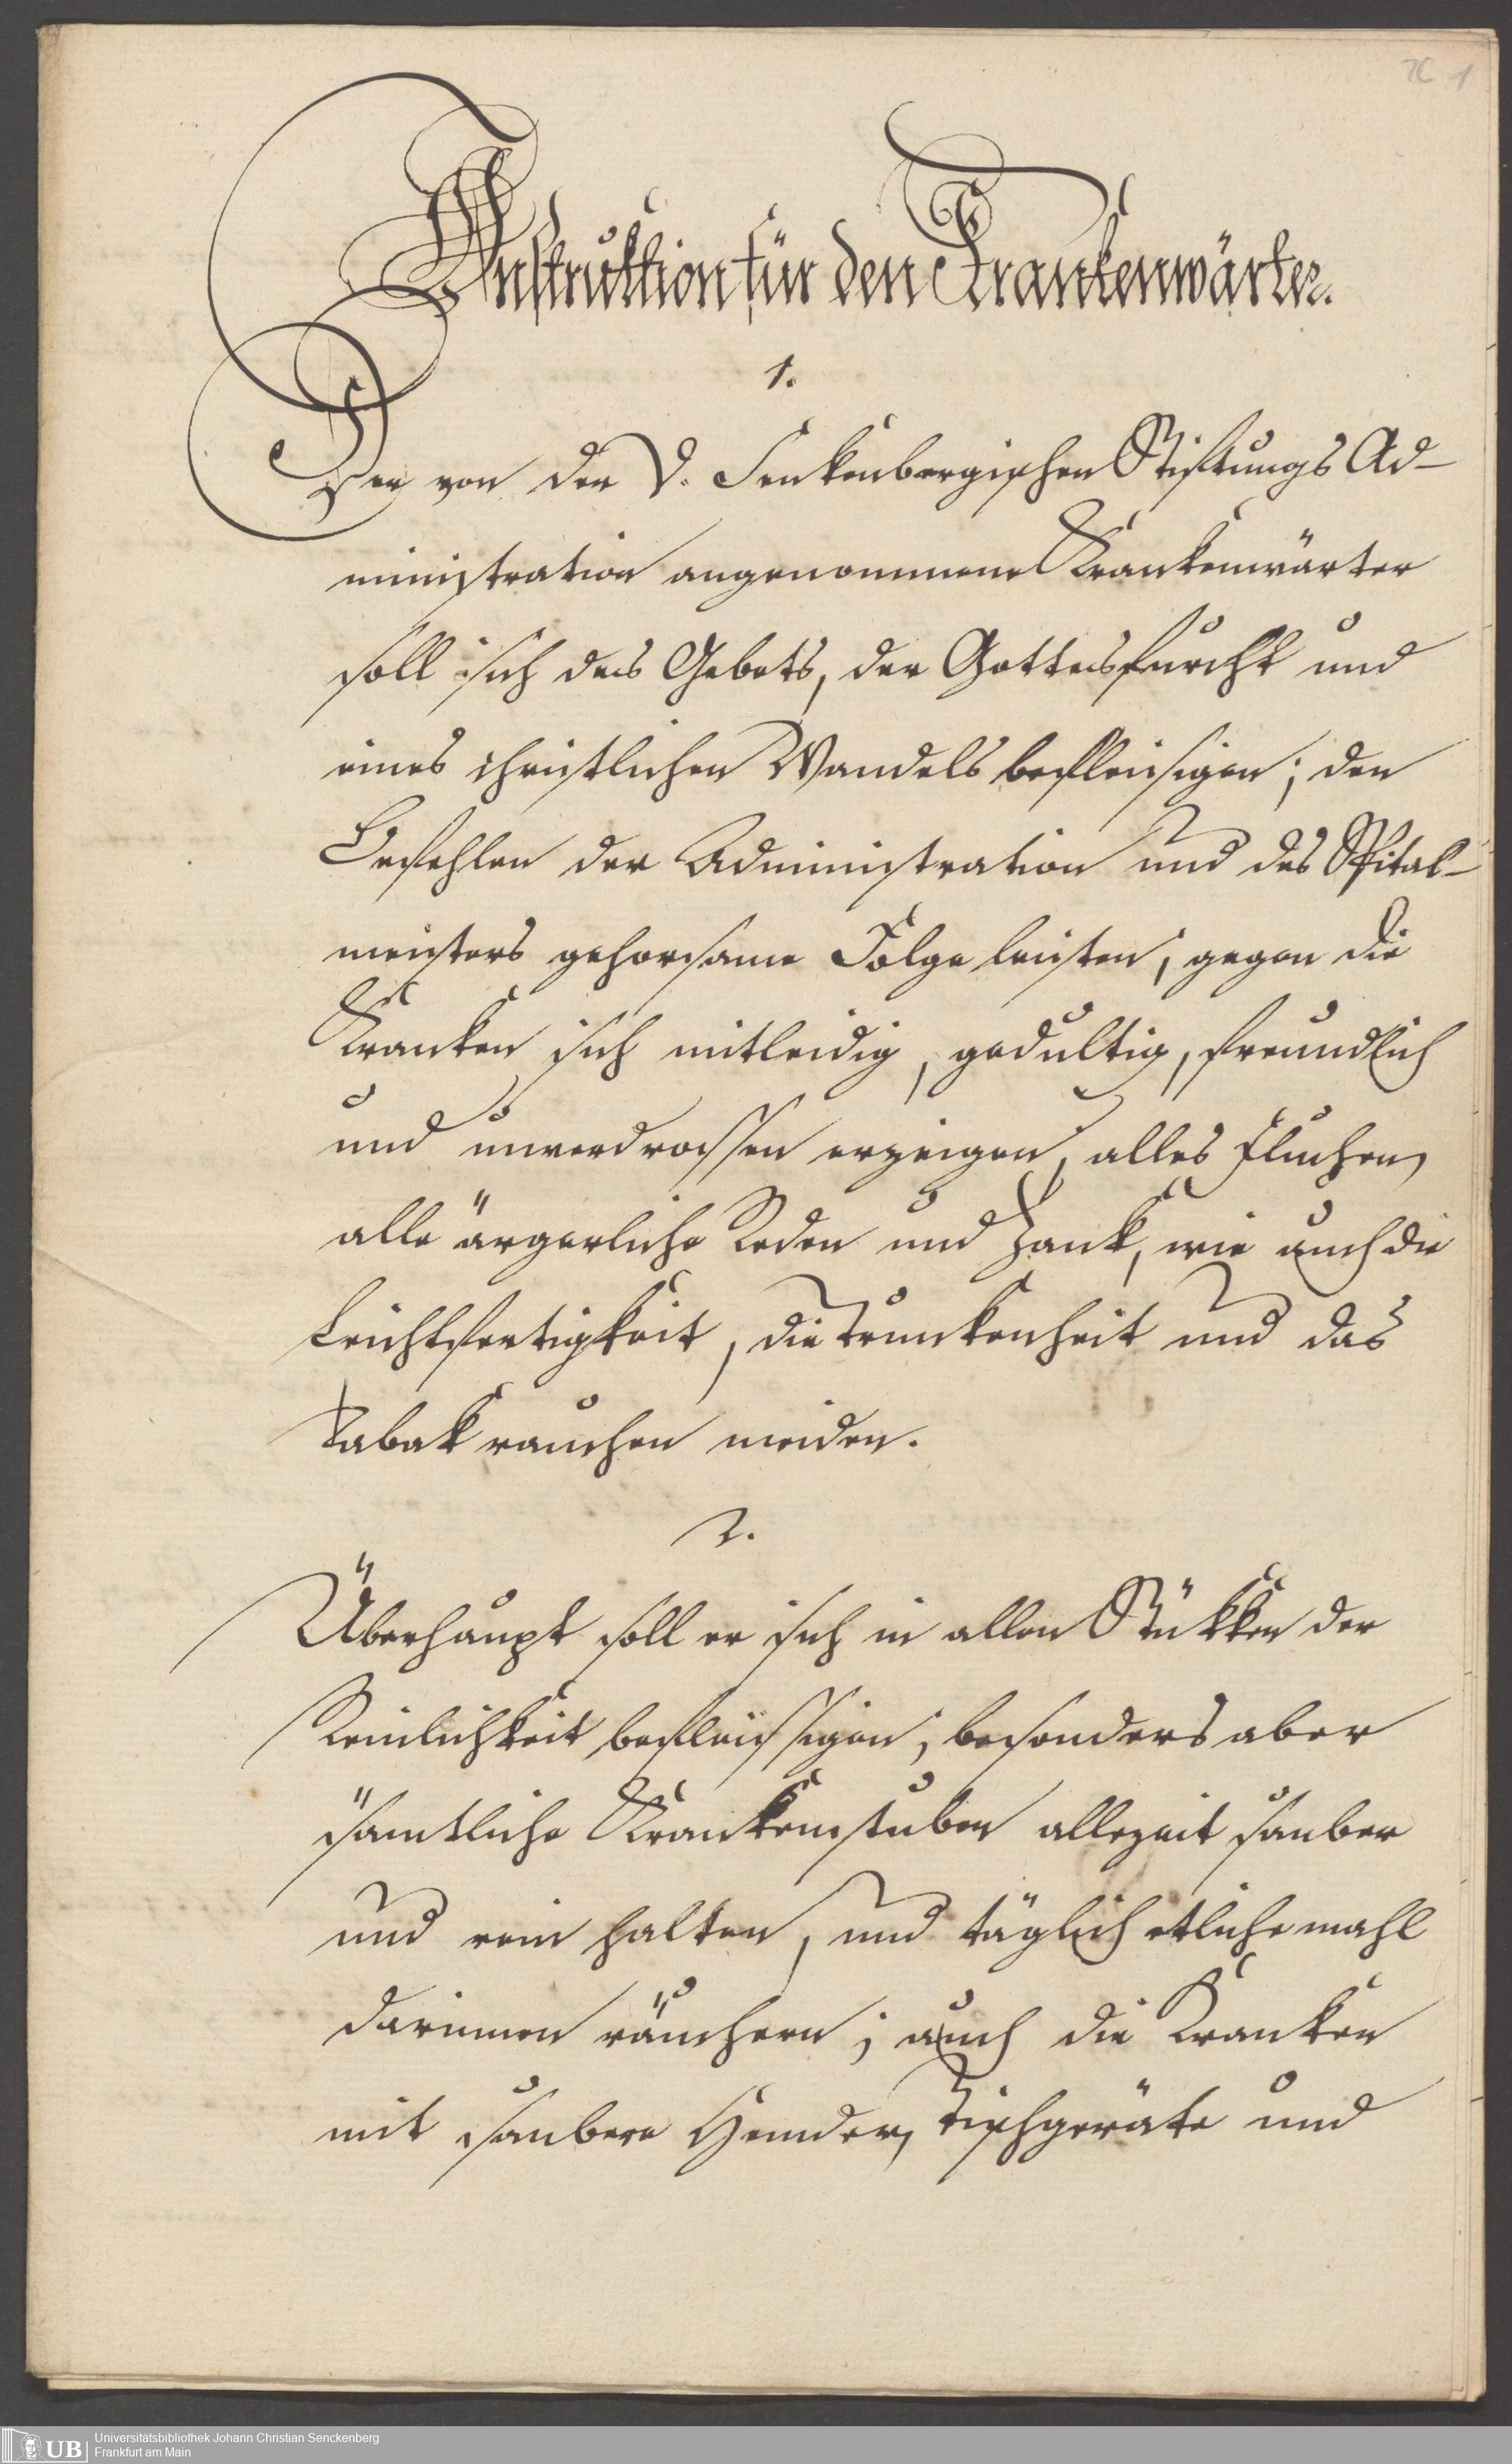 1
Instruktion für den Krankenwärter.
1.
Der von der D. Senkenbergischen Stiftungs Ad-
ministration angenommene Krankenwärter
soll sich des Gebets, der Gottesfurcht und
eines christlichen Wandels befleisigen; den
Befehlen der Administration und des Spital-
meisters gehorsame Folge leisten, gegen die
Kranken sich mitleidig, gedultig, freundlich
und unverdrossen erzeigen, alles Fluchen,
alle ärgerliche Reden und Zank, wie auch die
Leichtfertigkeit, die Trunkenheit und das
Tabak rauchen meiden.
2.
Überhaupt soll er sich in allen Stükken der
Reinlichkeit befleissigen, besonders aber
sämtliche Krankenstuben allezeit sauber
und rein halten, und täglich etliche mahl
darinnen räuchern; auch die Kranken
mit saubern Hemder, Tischgeräte und
UB
Universitätsbibliothek Johann Christian Senckenberg
Frankfurt am Main